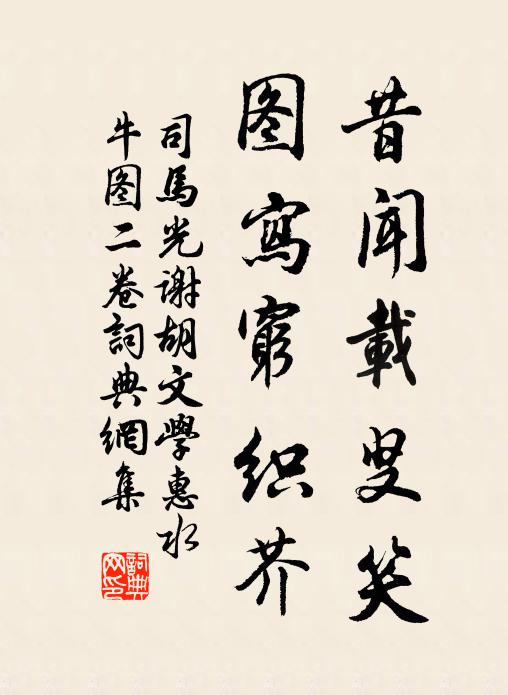 昔闻載叟笑
图寫窮织芥
司馬光谢胡文學惠水
牛图二卷詞典網集
詞典网印